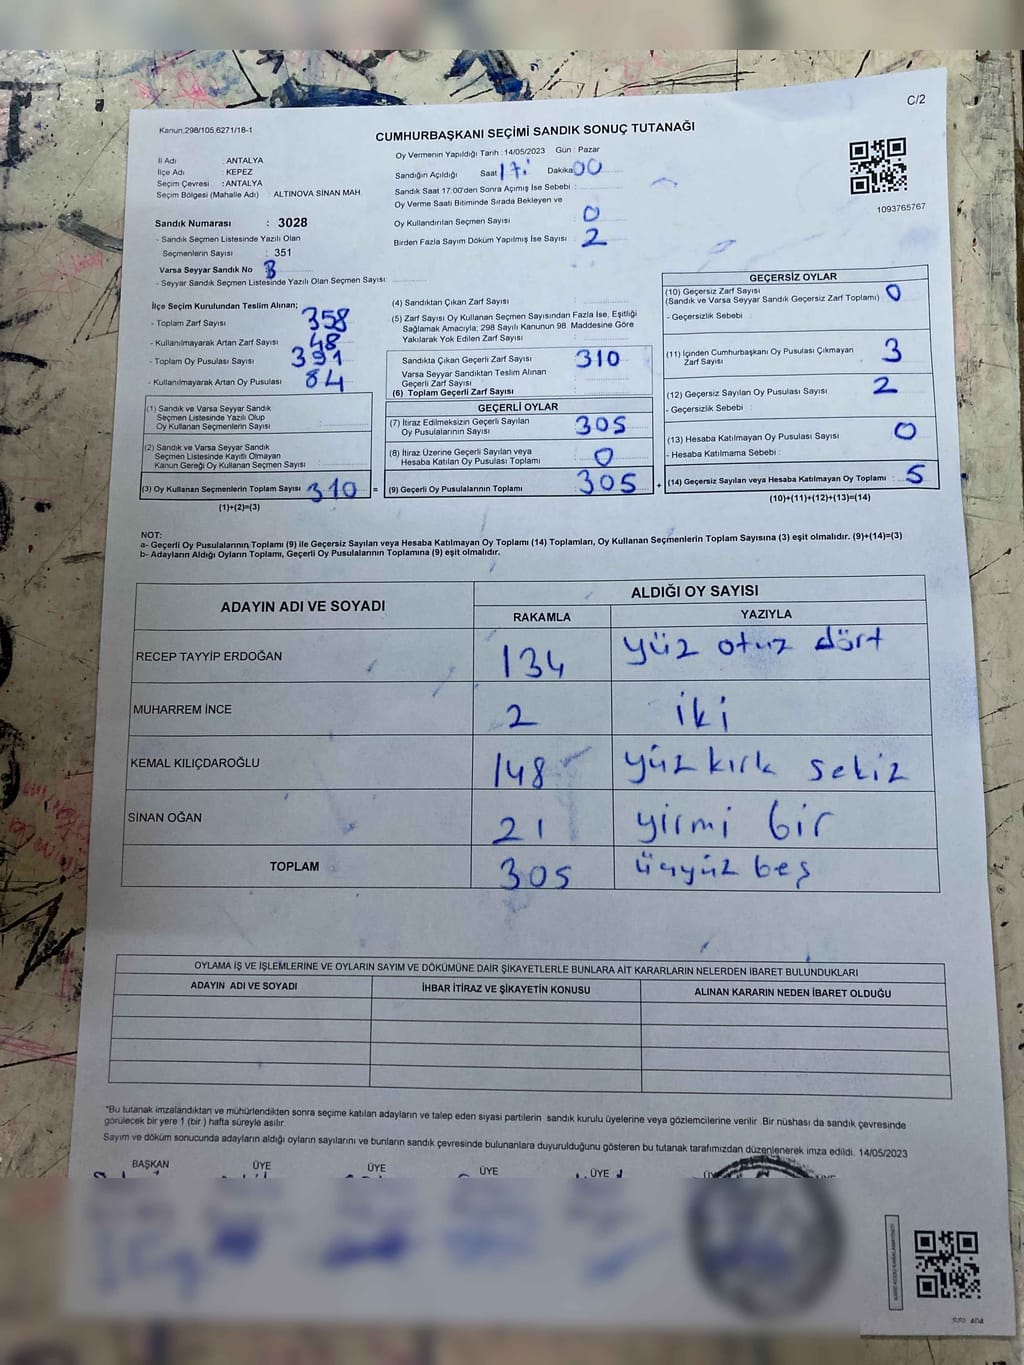 C/2
Kanun;298/105,6271/18-1
CUMHURBAŞKANI SEÇİMİ SANDIK SONUÇ TUTANAĞI
İl Adı : ANTALYA
İlçe Adı : KEPEZ
Seçim Çevresi : ANTALYA
Seçim Bölgesi (Mahalle Adı) : ALTINOVA SİNAN MAH.
Oy Vermenin Yapıldığı Tarih : 14/05/2023 Gün : Pazar
Sandığın Açıldığı Saat 17: Dakika 00
Sandık Saat 17:00'den Sonra Açımış İse Sebebi :
Oy Verme Saati Bitiminde Sırada Bekleyen ve
Oy Kullandırılan Seçmen Sayısı : 0
Birden Fazla Sayım Döküm Yapılmış İse Sayısı : 2
1093765767
Sandık Numarası : 3028
- Sandık Seçmen Listesinde Yazılı Olan
Seçmenlerin Sayısı : 351
Varsa Seyyar Sandık No
- Seyyar Sandık Seçmen Listesinde Yazılı Olan Seçmen Sayısı:
İlçe Seçim Kurulundan Teslim Alınan;
- Toplam Zarf Sayısı 358
- Kullanılmayarak Artan Zarf Sayısı : 48
- Toplam Oy Pusulası Sayısı 391
- Kullanılmayarak Artan Oy Pusulası : 84
(1) Sandık ve Varsa Seyyar Sandık
Seçmen Listesinde Yazılı Olup
Oy Kullanan Seçmenlerin Sayısı :
(2) Sandık ve Varsa Seyyar Sandık
Seçmen Listesinde Kayıtlı Olmayan
Kanun Gereği Oy Kullanan Seçmen Sayısı :
(3) Oy Kullanan Seçmenlerin Toplam Sayısı : 310 =
(1)+(2)=(3)
(4) Sandıktan Çıkan Zarf Sayısı :
(5) Zarf Sayısı Oy Kullanan Seçmen Sayısından Fazla İse, Eşitliği
Sağlamak Amacıyla; 298 Sayılı Kanunun 98 Maddesine Göre
Yakılarak Yok Edilen Zarf Sayısı :
Sandıkta Çıkan Geçerli Zarf Sayısı : 310
Varsa Seyyar Sandıktan Teslim Alınan
Geçerli Zarf Sayısı :
(6) Toplam Geçerli Zarf Sayısı :
GEÇERLİ OYLAR
(7) İtiraz Edilmeksizin Geçerli Sayılan
Oy Pusulalarının Sayısı : 305
(8) İtiraz Üzerine Geçerli Sayılan veya
Hesaba Katılan Oy Pusulası Toplamı : 0
(9) Geçerli Oy Pusulalarının Toplamı : 305 +
GEÇERSİZ OYLAR
(10) Geçersiz Zarf Sayısı : 0
(Sandık ve Varsa Seyyar Sandık Geçersiz Zarf Toplamı)
- Geçersizlik Sebebi :
(11) İçinden Cumhurbaşkanı Oy Pusulası Çıkmayan
Zarf Sayısı : 3
(12) Geçersiz Sayılan Oy Pusulası Sayısı : 2
- Geçersizlik Sebebi :
(13) Hesaba Katılmayan Oy Pusulası Sayısı : 0
- Hesaba Katılmama Sebebi :
(14) Geçersiz Sayılan veya Hesaba Katılmayan Oy Toplamı : 5
(10)+(11)+(12)+(13)=(14)
NOT:
a- Geçerli Oy Pusulalarının Toplamı (9) ile Geçersiz Sayılan veya Hesaba Katılmayan Oy Toplamı (14) Toplamları, Oy Kullanan Seçmenlerin Toplam Sayısına (3) eşit olmalıdır. (9)+(14)=(3)
b- Adayların Aldığı Oyların Toplamı, Geçerli Oy Pusulalarının Toplamına (9) eşit olmalıdır.
ADAYIN ADI VE SOYADI ALDIĞI OY SAYISI
RAKAMLA YAZIYLA
RECEP TAYYİP ERDOĞAN 134 yüz otuz dört
MUHARREM İNCE 2 iki
KEMAL KILIÇDAROĞLU 148 yüz kırk sekiz
SİNAN OĞAN 21 yirmi bir
TOPLAM 305 üçyüz beş
OYLAMA İŞ VE İŞLEMLERİNE VE OYLARIN SAYIM VE DÖKÜMÜNE DAİR ŞİKAYETLERLE BUNLARA AİT KARARLARIN NELERDEN İBARET BULUNDUKLARI
ADAYIN ADI VE SOYADI İHBAR İTİRAZ VE ŞİKAYETİN KONUSU ALINAN KARARIN NEDEN İBARET OLDUĞU
*Bu tutanak imzalandıktan ve mühürlendikten sonra seçime katılan adayların ve talep eden siyasi partilerin sandık kurulu üyelerine veya gözlemcilerine verilir. Bir nüshası da sandık çevresinde
görülecek bir yere 1 (bir ) hafta süreyle asılır.
Sayım ve döküm sonucunda adayların aldığı oyların sayılarını ve bunların sandık çevresinde bulunanlara duyurulduğunu gösteren bu tutanak tarafımızdan düzenlenerek imza edildi. 14/05/2023
BAŞKAN ÜYE ÜYE ÜYE ÜYE